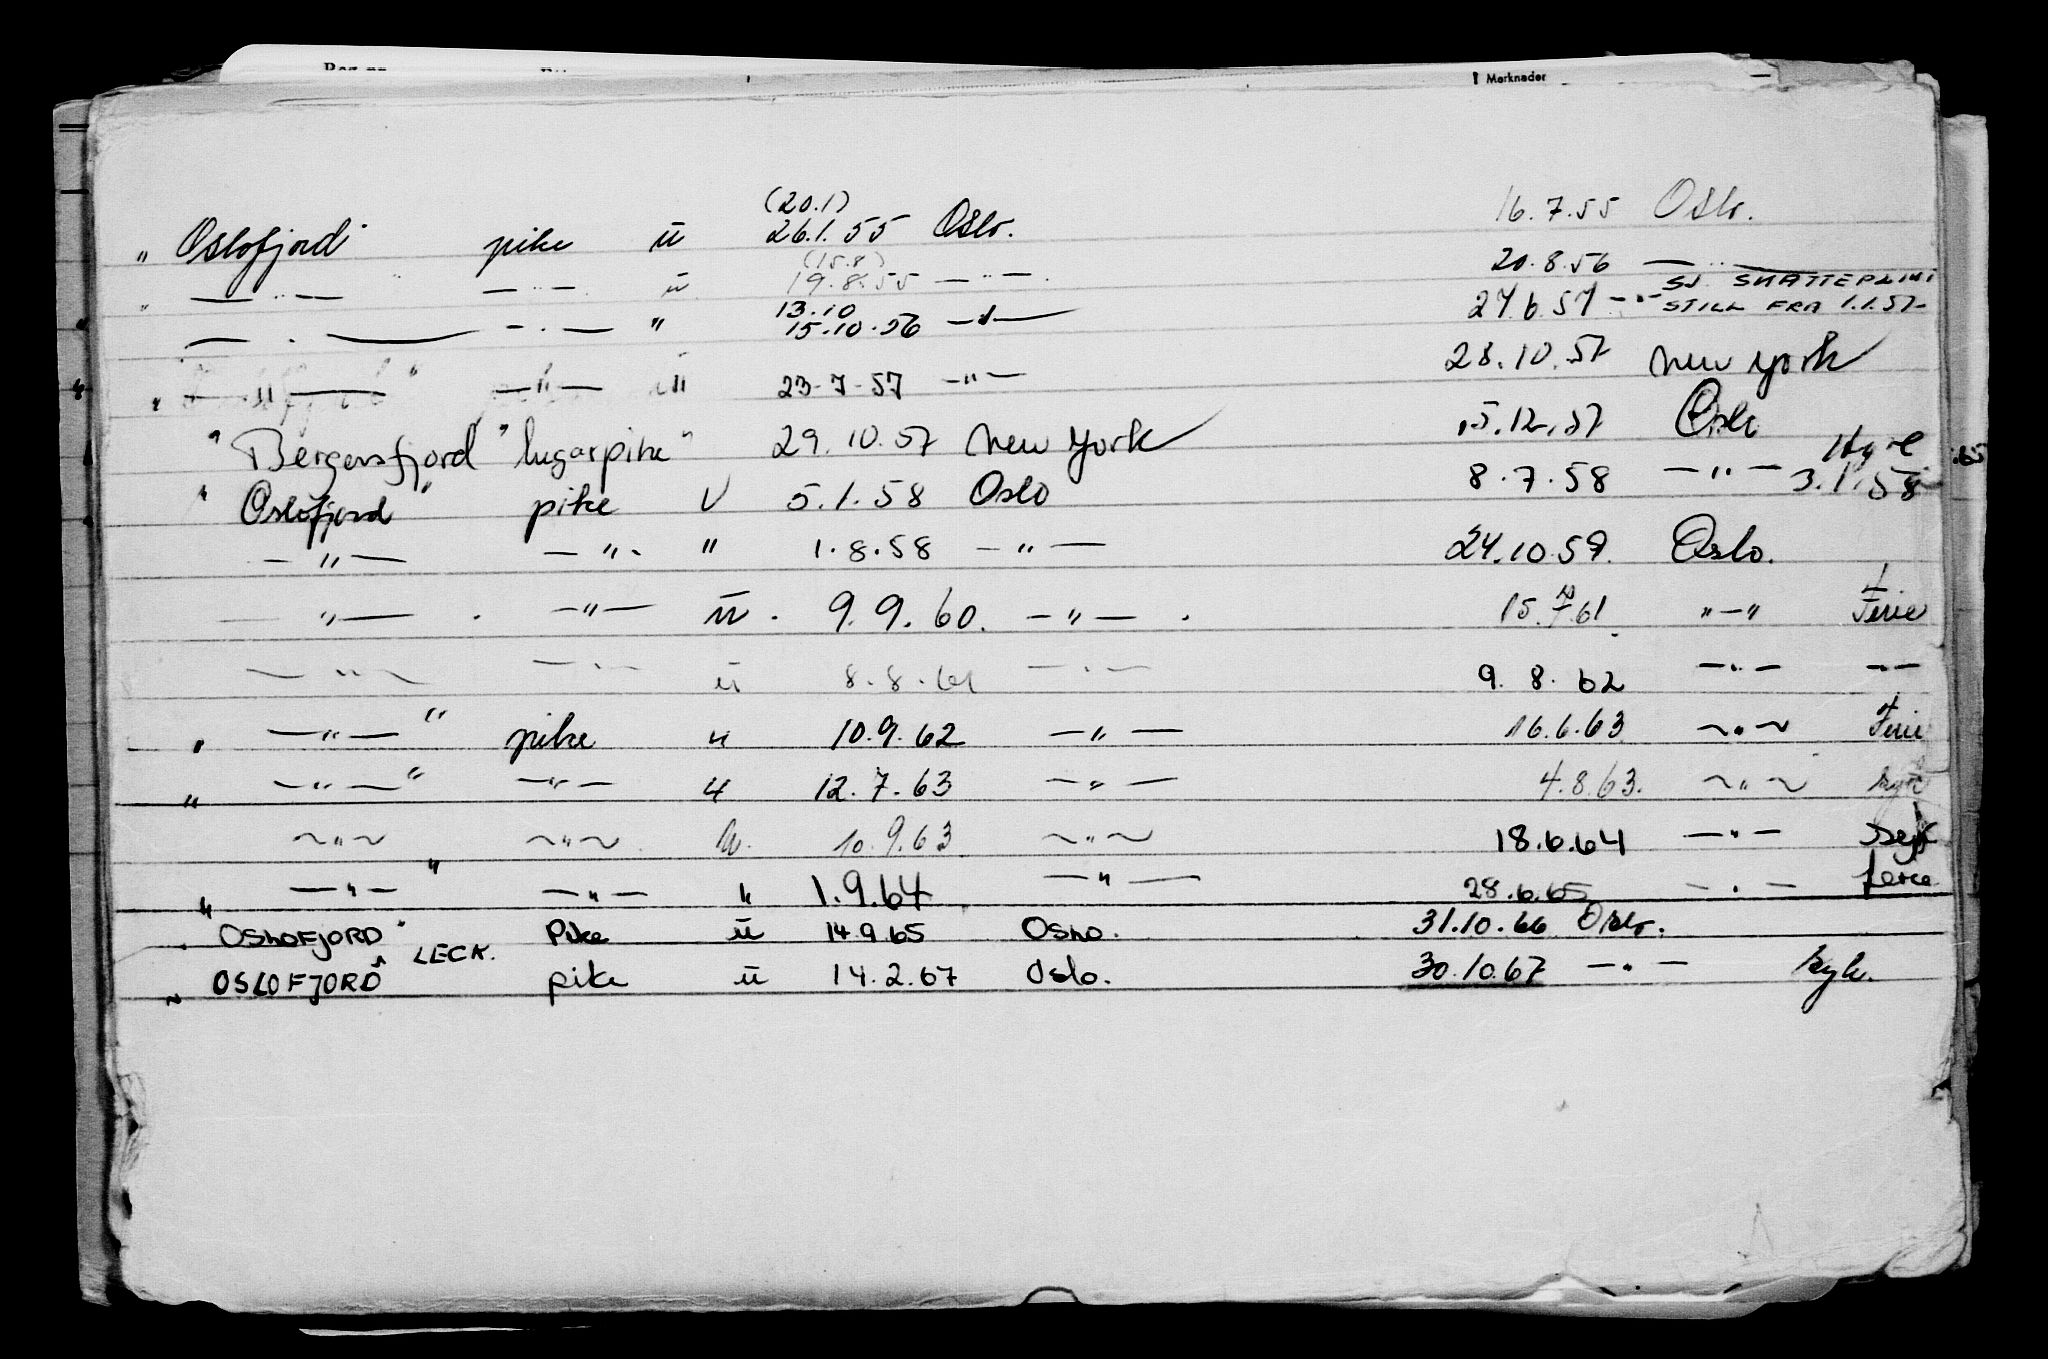 Merknader
" Oslofjord pike ü (20.1) 26.1.55 Oslo. 16.7.55 Oslo.
" — " — — " — ü (15.8) 19.8.55 — " — 20.8.56 — " —
— " — — " — " 13.10 15.10.56 — " — 27.6.57 — " — SJ. SKATTEPLIKT STILL FRA 1.1.57
" — " — " — " — " 23-7-57 — " — 28.10.57 New York
" Bergensfjord " lugarpike " 29.10.57 New York 15.12.57 Oslo
" Oslofjord " pike V 5.1.58 Oslo 8.7.58 — " — Hyre 3.1.58
— " — — " — " 1.8.58 — " — 24.10.59. Oslo.
— " — — " — ü. 9.9.60. — " — 15.7.61 " — " Ferie
— " — — " — ü 8.8.61 — " — 9.8.62 — " — — " —
" — " — " pike u 10.9.62 — " — 16.6.63 ~ " ~ Ferie
" — " — " — " — u 12.7.63 — " — 4.8.63. ~ " ~
~ " ~ ~ " ~ u. 10.9.63 ~ " ~ 18.6.64 — " —
" — " — " — " — " 1.9.64 — " — 28.6.65 — " — ferie
" OSLOFJORD " Pike ü 14.9.65 Oslo. 31.10.66 Oslo.
" OSLOFJORD " LECK. pike ü 14.2.67 Oslo. 30.10.67 — " — syk.